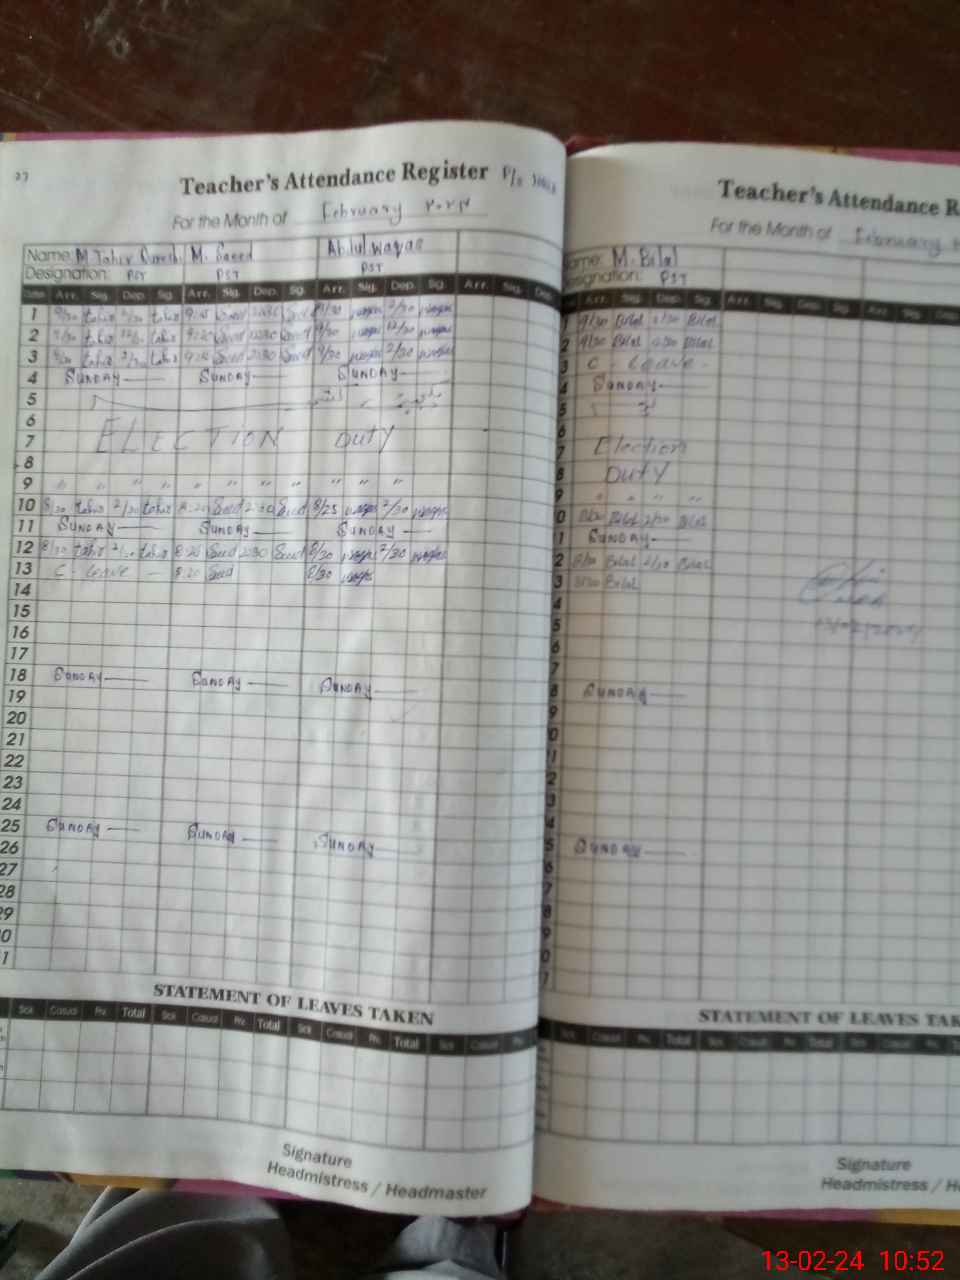 27
Teacher's Attendance Register
For the Month of February ۲۰۲۴
Name: M. Tahir M. Saeed Abdul Waqas
Designation: PST PST PST
Date Arr. Sig. Dep. Sig. Arr. Sig. Dep. Sig. Arr. Sig. Dep. Sig. Arr. Sig. Dep.
1 9/30 tahir 2/30 tahir 9:25 Saeed Saeed 9/30 waqas 2/30 waqas
2 9/30 tahir 12/30 tahir 9:20 Saeed 12:30 Saeed 9/30 waqas 12/30 waqas
3 9/30 tahir 2/30 tahir 9:20 Saeed 2:30 Saeed 9/30 waqas 2/30 waqas
4 SUNDAY SUNDAY SUNDAY
5
6
7 ELECTION DUTY
8
9 " " " " " " " " " " "
10 8/30 tahir 2/30 tahir 8:20 Saeed 2:30 Saeed 8/25 waqas 2/30 waqas
11 SUNDAY SUNDAY SUNDAY
12 8/30 tahir 2/30 tahir 8:20 Saeed 2:30 Saeed 8/30 waqas 2/30 waqas
13 C - Leave 8:20 Saeed 8/30 waqas
14
15
16
17
18 SUNDAY SUNDAY SUNDAY
19
20
21
22
23
24
25 SUNDAY SUNDAY SUNDAY
26
27
28
29
0
1
STATEMENT OF LEAVES TAKEN
Sick Casual Prv. Total Sick Casual Prv. Total Sick Casual Prv. Total Sick Casual Prv.
Signature
Headmistress / Headmaster
Teacher's Attendance R
For the Month of February
ame: M. Bilal
signation: PST
Arr. Sig. Dep. Sig. Arr. Sig. Dep. Sig. Arr. Sig. Dep.
1 9/30 Bilal 2/30 Bilal
2 9/30 Bilal 12/30 Bilal
3 C - Leave -
4 SUNDAY
5
6
7 Election
8 DUTY
9 " " " "
0 8/30 Bilal 2/30 Bilal
1 SUNDAY
2 8/30 Bilal 2/30 Bilal
3 8/30 Bilal
4
5
6
7
8 SUNDAY
9
0
1
2
3
4
5 SUNDAY
6
7
8
9
0
1
STATEMENT OF LEAVES TAK
Sick Casual Prv. Total Sick Casual Prv. Total Sick Casual Prv.
Signature
Headmistress / He
13-02-24 10:52